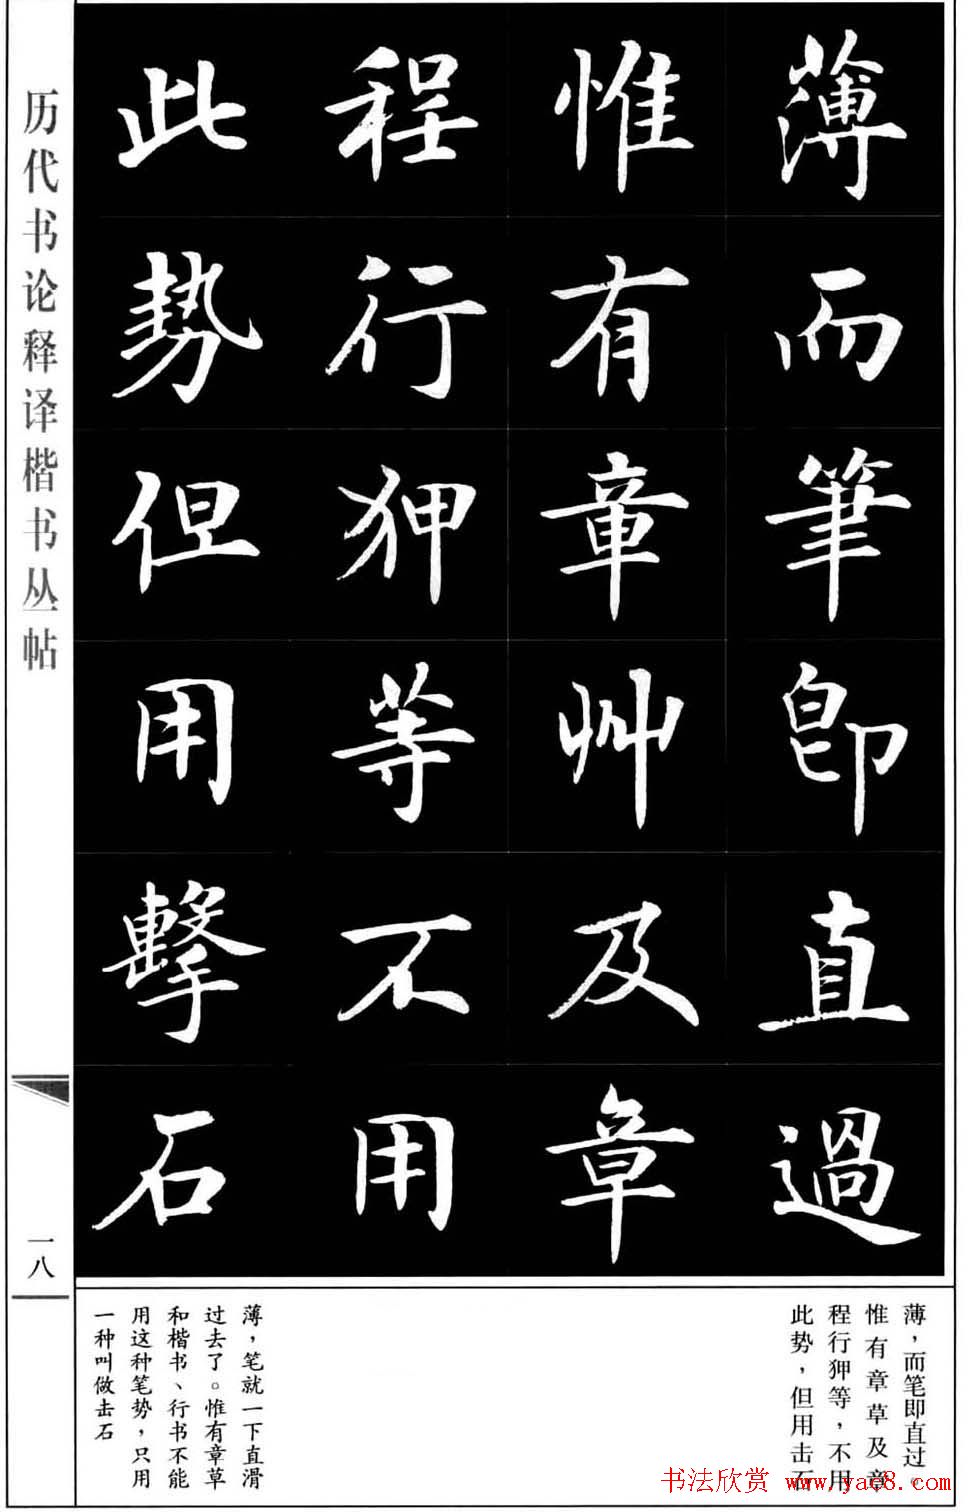 薄而筆即直過
惟有章艸及章
程行狎等不用
此勢但用擊石
历代书论释译楷书丛帖
一八
薄，而笔即直过。
惟有章草及章
程行狎等，不用
此势，但用击石
薄，笔就一下直滑
过去了。惟有章草
和楷书、行书不能
用这种笔势，只用
一种叫做击石
书法欣赏 www.yac8.com